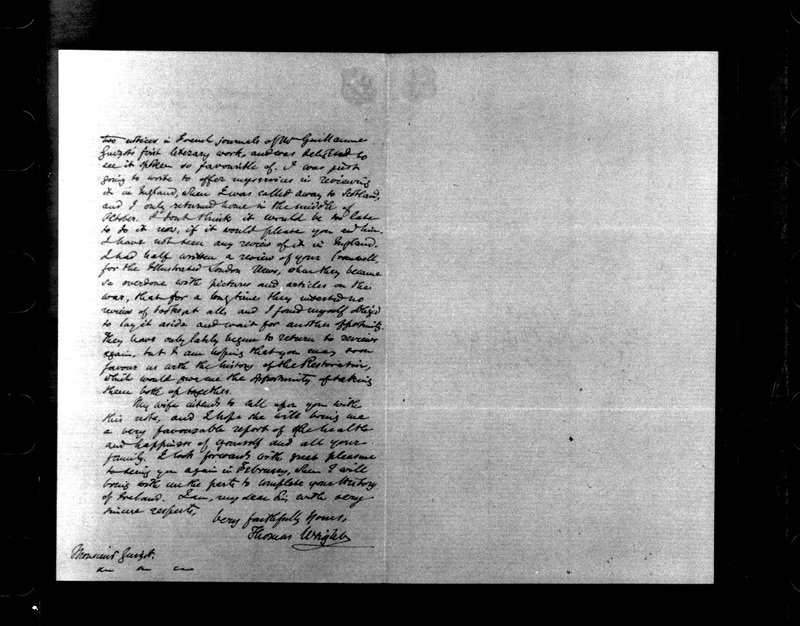 two notices in French journals of Mr Guillaume
Guizot's first literary work, and was delighted to
see it spoken so favourable of. I was just
going to write to offer my services in reviewing
it in England, when I was called away to Scotland,
and I only returned home in the middle of
October. I don't think it would be too late
to do it now, if it would please you and him.
I have not seen any review of it in England.
I had half written a review of your Cromwell,
for the Illustrated London News, when they became
so overdone with pictures and articles on the
war, that for a long time they inserted no
review of books at all, and I found myself obliged
to lay it aside and wait for another opportunity.
They have only lately begun to return to reviews
again, but I am hoping that you may soon
favour us with the history of the Restoration,
which would give me the opportunity of taking
them both up together.
My wife intends to call upon you with
this note, and I hope she will bring me
a very favourable report of the health
and happiness of yourself and all your
family. I look forwards with great pleasure
to seeing you again in February, when I will
bring with me the parts to complete your History
of Ireland. I am, my dear Sir, with very
sincere respects,
Very faithfully Yours,
Thomas Wright
Monsieur Guizot.